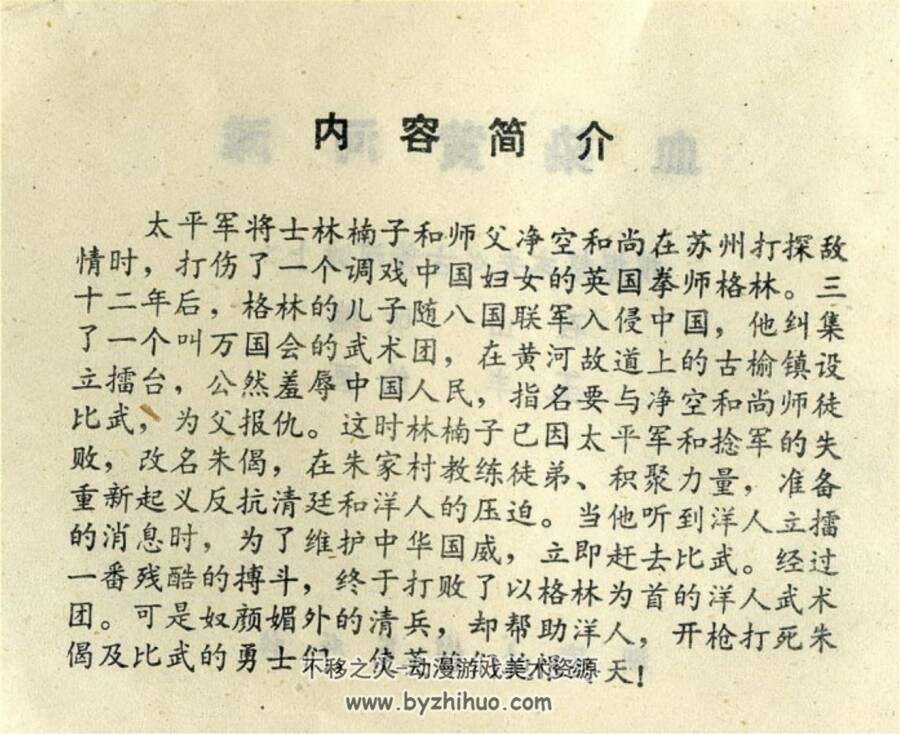 内容简介
太平军将士林楠子和师父净空和尚在苏州打探敌
情时，打伤了一个调戏中国妇女的英国拳师格林。三
十二年后，格林的儿子随八国联军入侵中国，他纠集
了一个叫万国会的武术团，在黄河故道上的古榆镇设
立擂台，公然羞辱中国人民，指名要与净空和尚师徒
比武，为父报仇。这时林楠子已因太平军和捻军的失
败，改名朱偈，在朱家村教练徒弟、积聚力量，准备
重新起义反抗清廷和洋人的压迫。当他听到洋人立擂
的消息时，为了维护中华国威，立即赶去比武。经过
一番残酷的搏斗，终于打败了以格林为首的洋人武术
团。可是奴颜媚外的清兵，却帮助洋人，开枪打死朱
偈及比武的勇士们 天！
不移之火-动漫游戏美术资源
www.byzhihuo.com